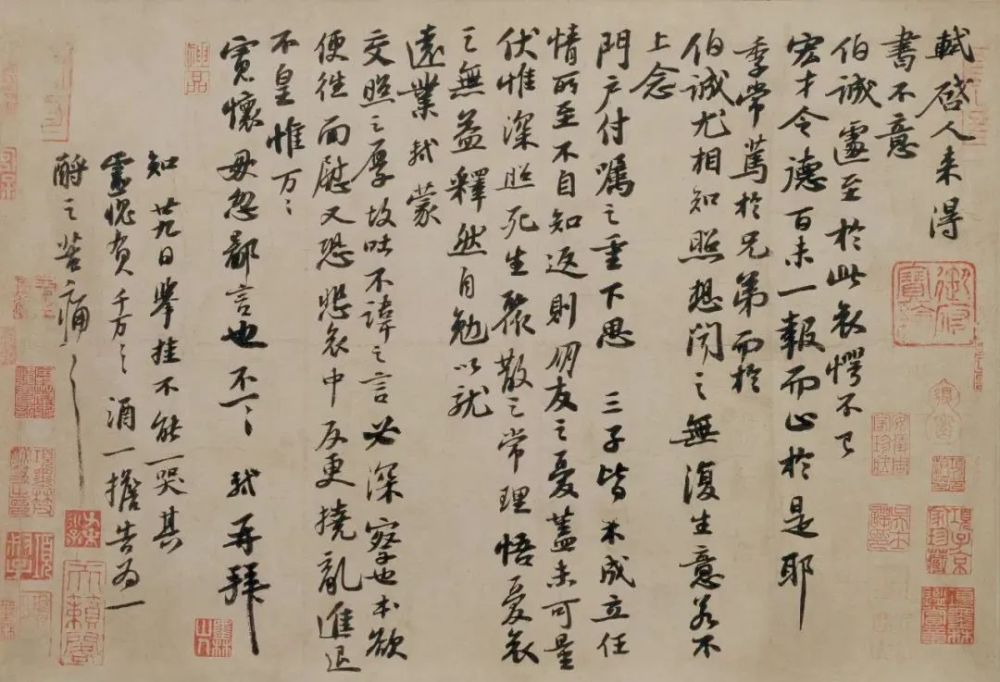 軾啓人来得
書不意
伯誠遽至於此哀愕不已
宏才令德百未一報而止於是耶
季常篤於兄弟而於
伯誠尤相知照想聞之無復生意若不
上念
門户付囑之重下思三子皆未成立任
情所至不自知返則朋友之憂蓋未可量
伏惟深照死生聚散之常理悟憂哀
之無益釋然自勉以就
遠業軾蒙
交照之厚故吐不諱之言必深察也本欲
便往面慰又恐悲哀中反更撓亂進退
不皇惟万〻
寛懷毋忽鄙言也不一〻軾再拜
知廿九日舉挂不能一哭其
靈愧負千万〻酒一擔告爲一
酹之苦痛〻
御府寶繪
神品
項子京家珍藏
天籟閣